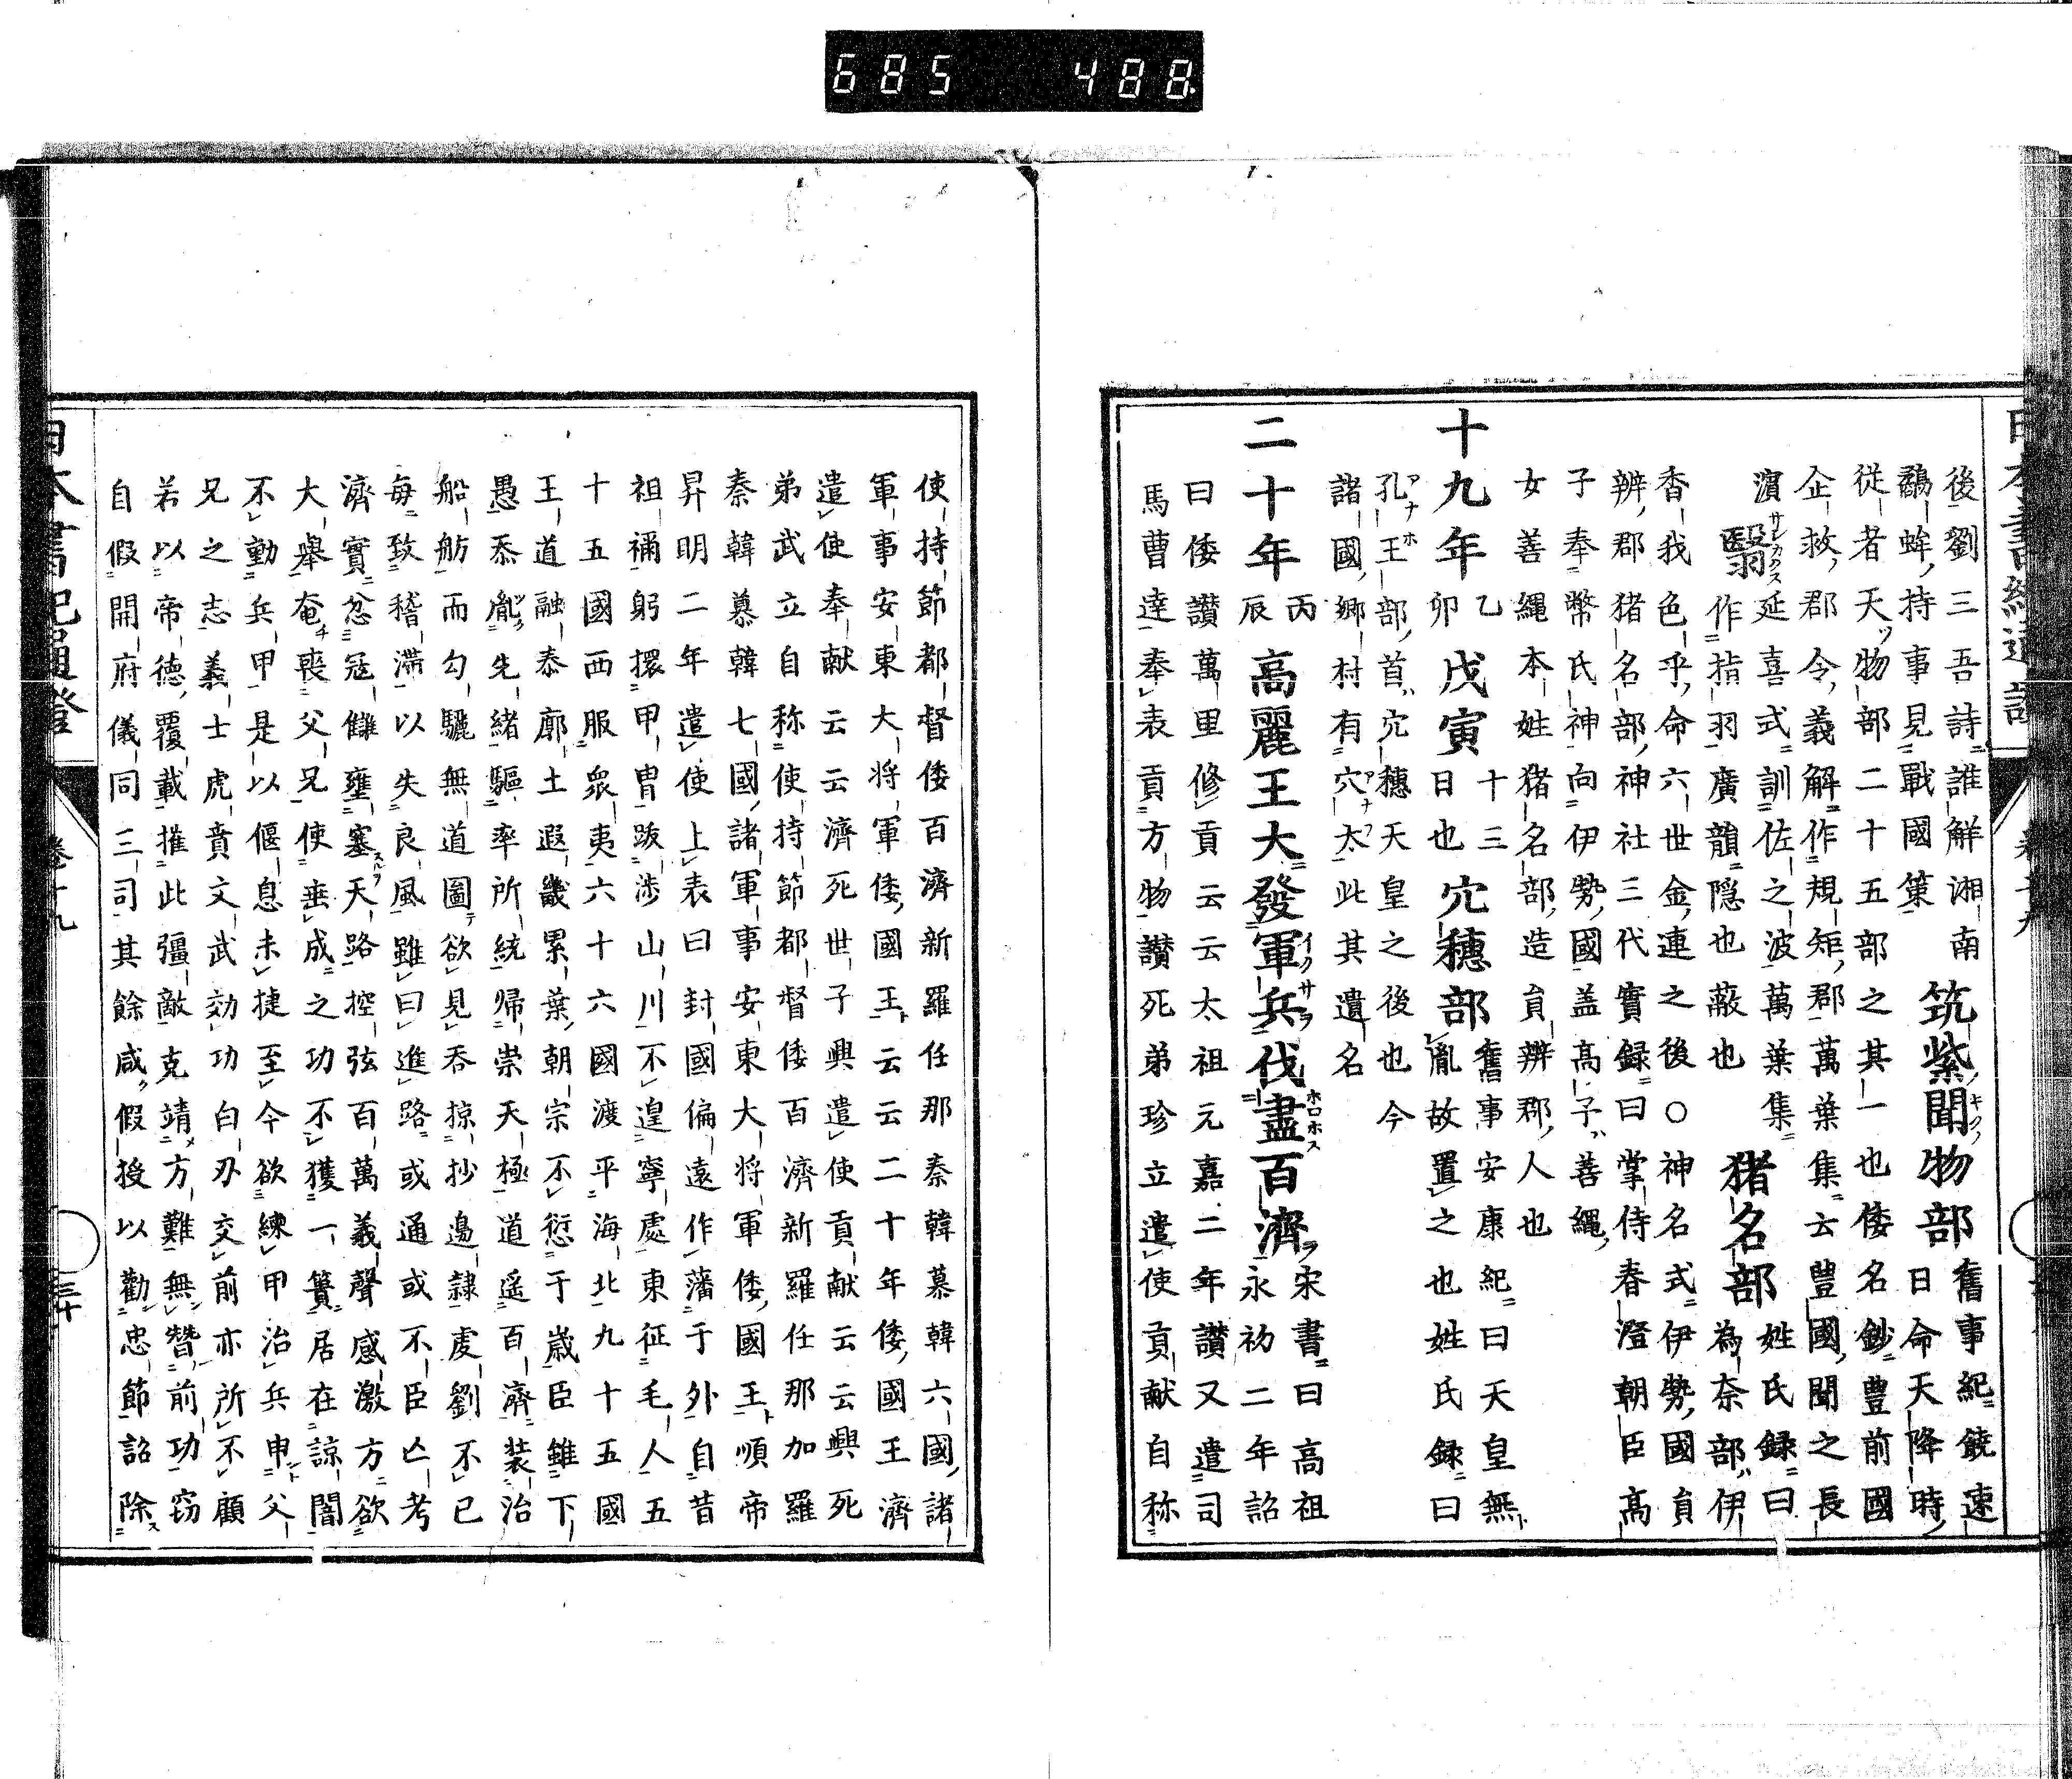 685 488
後劉三吾詩誰解湘南
鷸蚌持事見戰國策
筑紫聞物部
舊事紀饒速
日命天降時
從者天物部二十五部之其一也倭名鈔豊前國
企救郡令義解作規矩郡萬葉集云豊國聞之長
濵
翳
延喜式訓佐之波萬葉集
作指羽廣韻隠也蔽也
猪名部
姓氏録曰
為奈部伊
香我色乎命六世金連之後○神名式伊勢國員
辨郡猪名部神社三代實録曰掌侍春澄朝臣髙
子奉幣氏神向伊勢國盖髙子善縄
女善縄本姓猪名部造員辨郡人也
十九年
乙
卯
戊寅
十三
日也
穴穗部
舊事安康紀曰天皇無
胤故置之也姓氏録曰
孔王部首穴穗天皇之後也今
諸國郷村有穴太此其遺名
二十年
丙
辰
高麗王大發軍兵伐盡百濟
宋書曰高祖
永初二年詔
曰倭讃萬里修貢云云太祖元嘉二年讃又遣司
馬曹達奉表貢方物讃死弟珍立遣使貢献自称
使持節都督倭百濟新羅任那秦韓慕韓六國諸
軍事安東大将軍倭國王云云二十年倭國王濟
遣使奉献云云濟死世子興遣使貢献云云興死
弟武立自称使持節都督倭百濟新羅任那加羅
秦韓慕韓七國諸軍事安東大将軍倭國王順帝
昇明二年遣使上表曰封國偏遠作藩于外自昔
祖禰躬擐甲冑跋渉山川不遑寧處東征毛人五
十五國西服衆夷六十六國渡平海北九十五國
王道融泰廓土遐畿累葉朝宗不愆于歳臣雖下
愚忝胤先緒驅率所統帰崇天極道遥百濟装治
船舫而勾驪無道圖欲見呑掠抄邉隷虔劉不已
毎致稽滞以失良風雖曰進路或通或不臣亾考
濟實忿冦讎壅塞天路控弦百萬義聲感激方欲
大擧奄喪父兄使垂成之功不獲一簣居在諒闇
不動兵甲是以偃息未捷至今欲練甲治兵申父
兄之志義士虎賁文武効功白刄交前亦所不顧
若以帝德覆載摧此彊敵克靖方難無朁前功窃
自假開府儀同三司其餘咸假授以勸忠節詔除